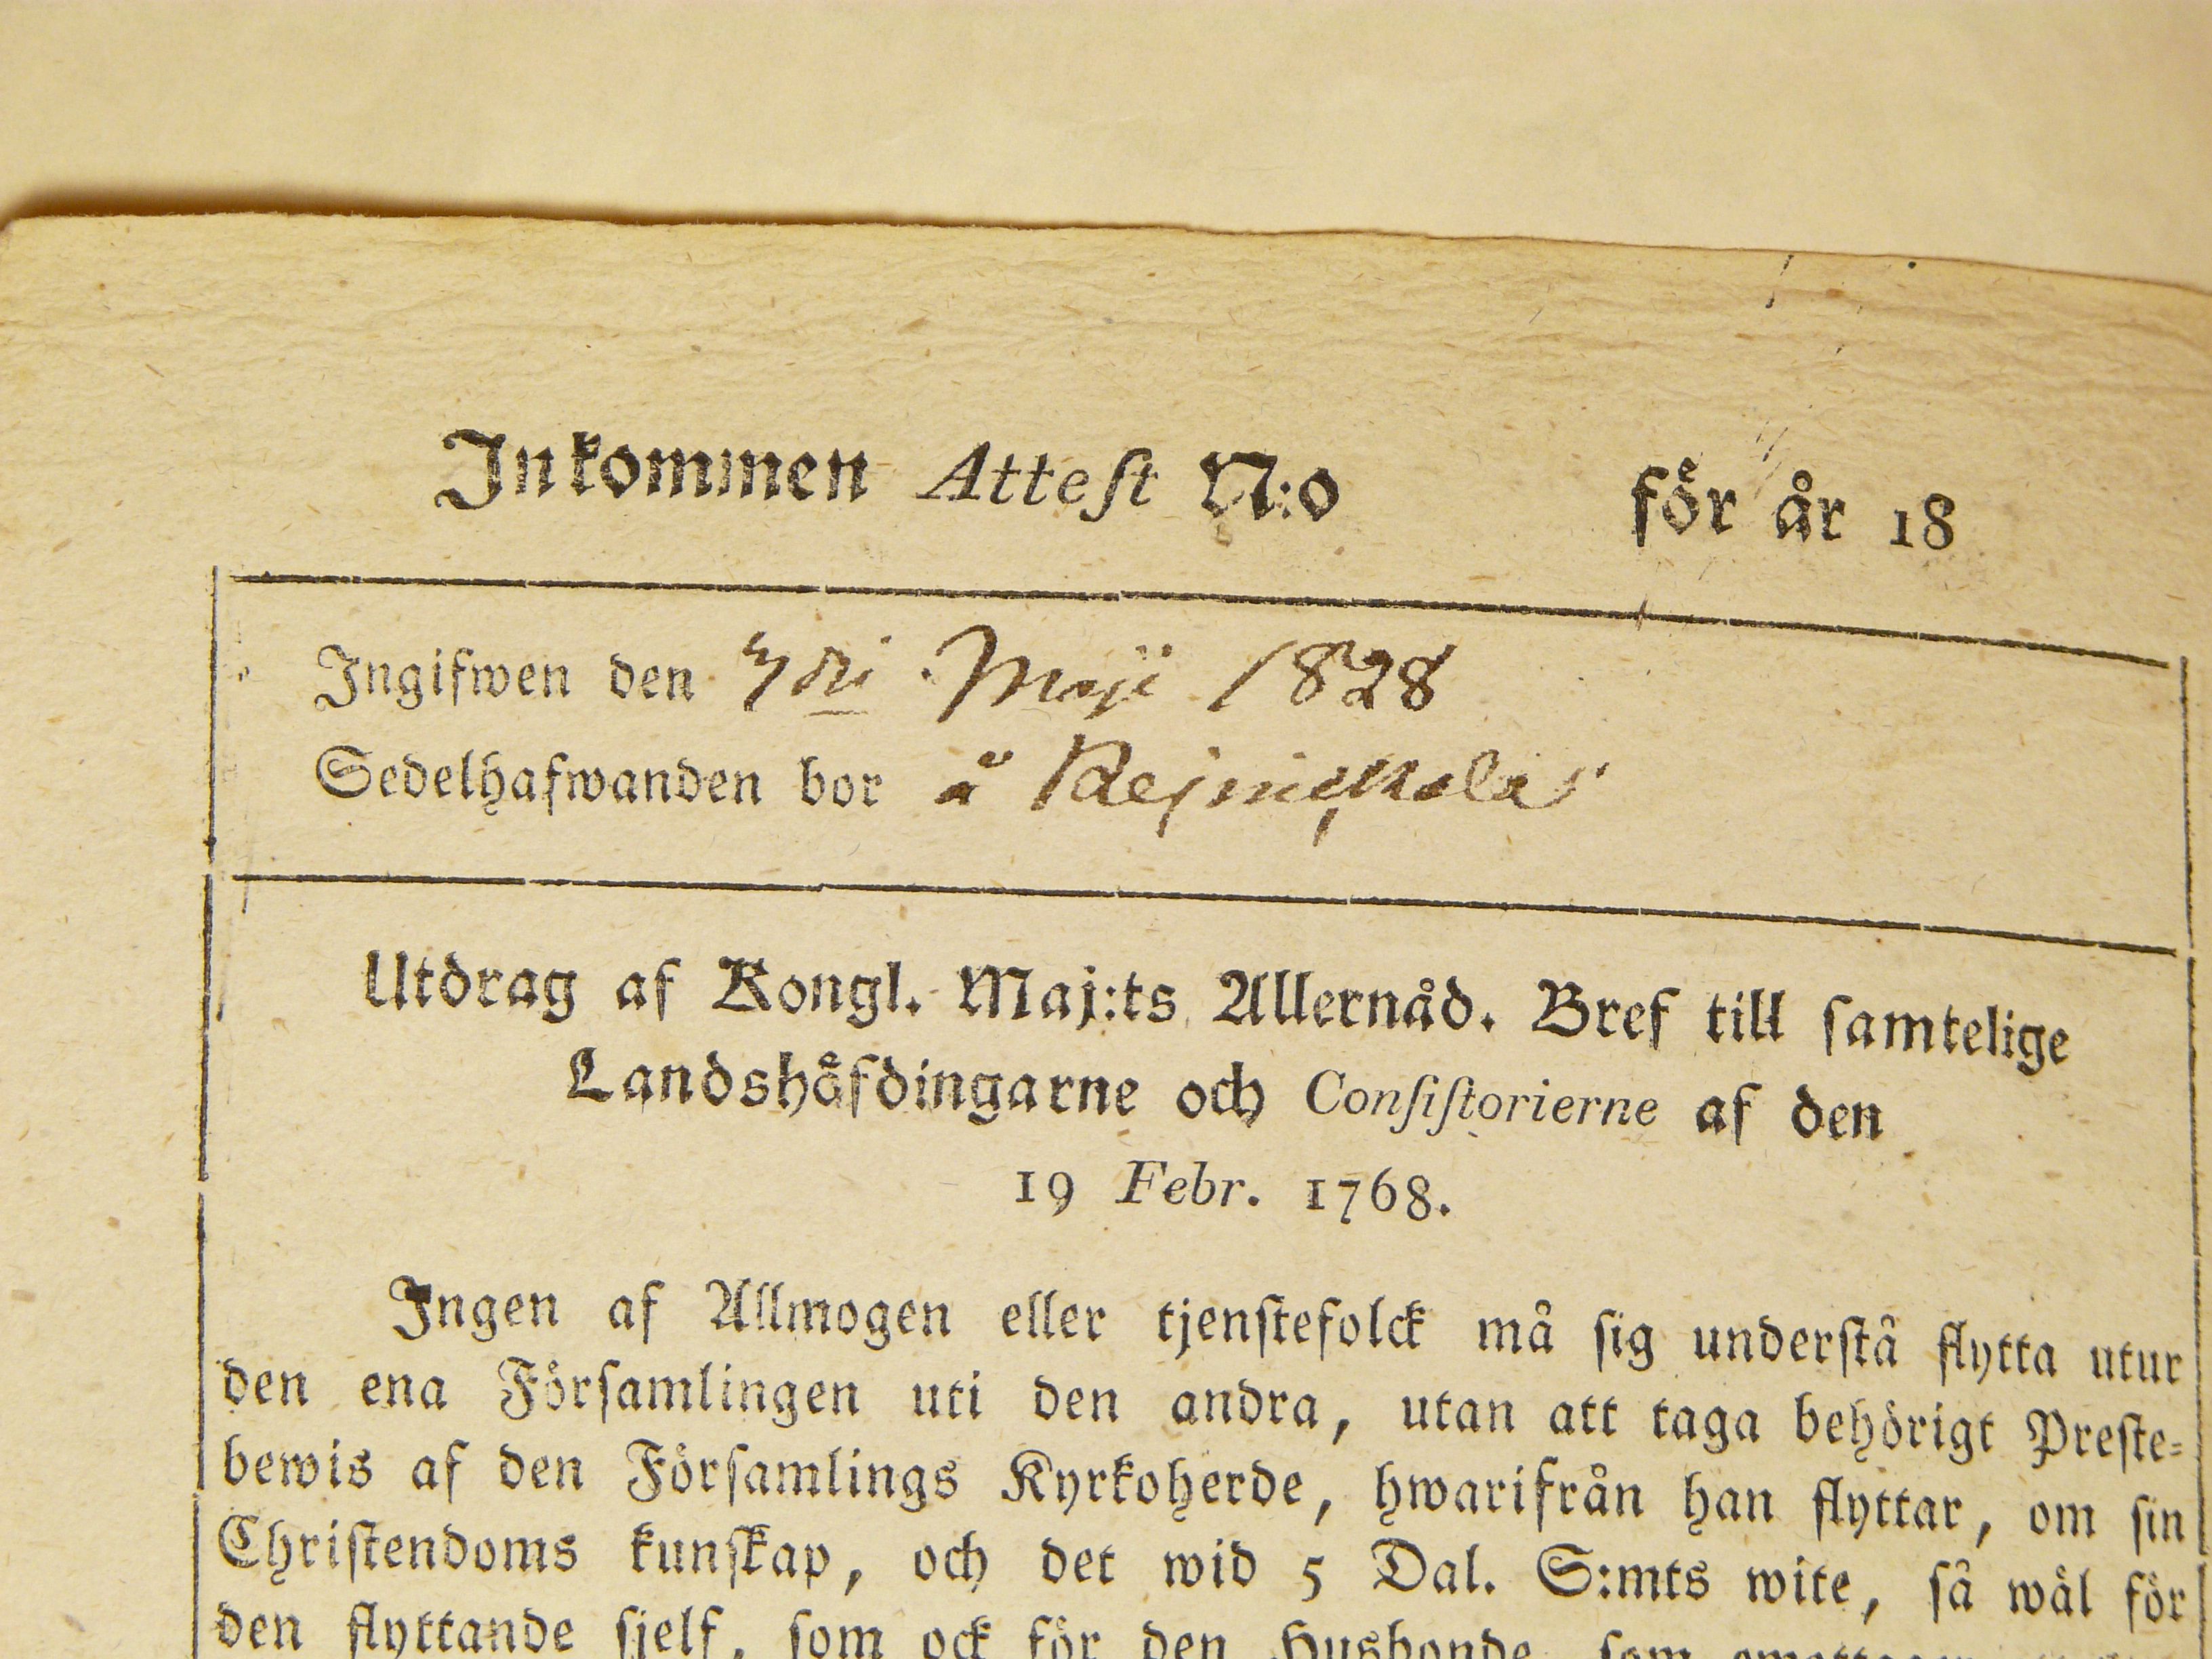 Inkommen Atteſt N:o för år 18
Ingifwen den Maji 1828
Sedelhafwanden bor å
Utdrag af Kongl. Maj:ts Allernåd. Bref till ſamtelige
Landshöfdingarne och Conſiſtorierne af den
19 Febr. 1768.
Ingen af Allmogen eller tjenſtefolck må ſig underſtå flytta utur
den ena Förſamlingen uti den andra, utan att taga behörigt Preſte=
bewis af den Förſamlings Kyrkoherde, hwarifrån han flyttar, om ſin
Chriſtendoms kunſkap, och det wid 5 Dal. S:mts wite, ſå wäl för
den flyttande ſjelf, ſom ock för den Husbonde ſom